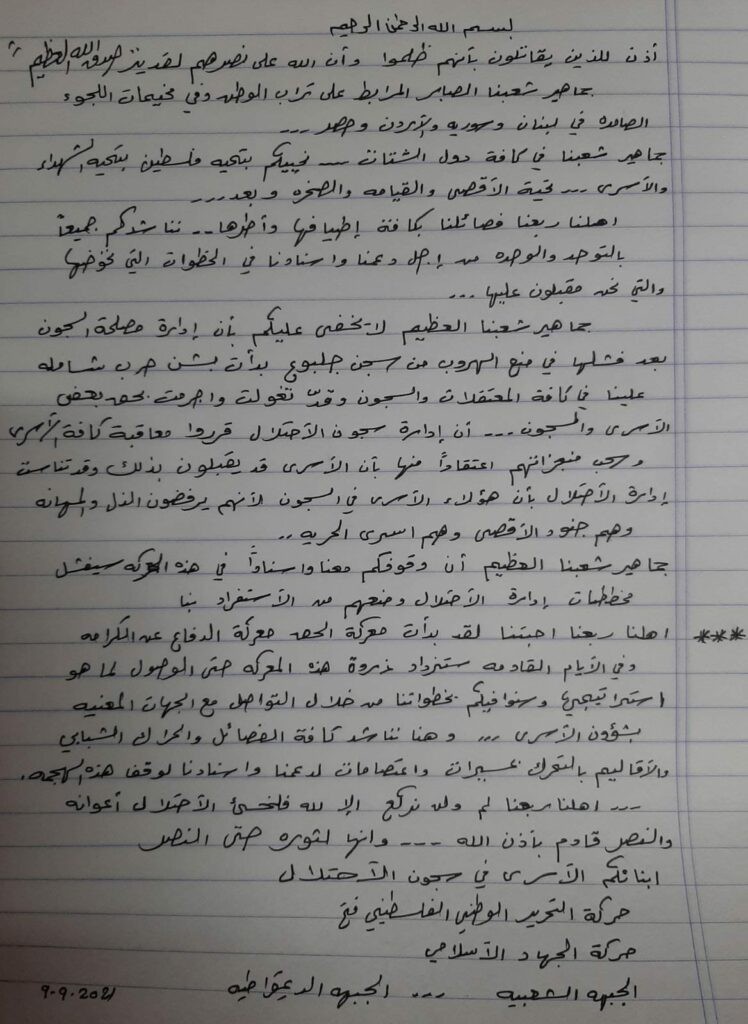 بسم الله الرحمن الرحيم
أذن للذين يقاتلون بأنهم ظلموا وأن الله على نصرهم لقدير صدق الله العظيم
جماهير شعبنا الصابر المرابط على تراب الوطن وفي مخيمات اللجوء
الصامده في لبنان وسوريه والأردن ومصر ...
جماهير شعبنا في كافة دول الشتات ... نحييكم بتحيه فلسطين بتحيه الشهداء
والأسرى ... تحية الأقصى والقيامه والصخره وبعد ...
اهلنا ربعنا فصائلنا بكافة إطيافها وأطرها .. نناشدكم جميعاً
بالتوحد والوحده من إجل دعمنا واسنادنا في الخطوات التي نخوضها
والتي نحن مقبلون عليها ...
جماهير شعبنا العظيم لا يخفى عليكم بأن إدارة مصلحة السجون
بعد فشلها في منع الهروب من سجن جلبوع بدأت بشن حرب شامله
علينا في كافة المعتقلات والسجون وقد تغولت واجرمت بحق بعض
الأسرى والسجون ... أن إدارة سجون الأحتلال قرروا معاقبة كافة الأسرى
وسحب منجزاتهم اعتقاداً منها بأن الأسرى قد يقبلون بذلك وقد تناست
إدارة الأحتلال بأن هؤلاء الأسرى في السجون لأنهم يرفضون الذل والمهانه
وهم جنود الأقصى وهم اسرى الحريه ..
جماهير شعبنا العظيم أن وقوفكم معنا واسناداً في هذه المعركه سيفشل
مخططات إدارة الأحتلال ومنعهم من الأستفراد بنا
*** اهلنا ربعنا احبتنا لقد بدأت معركة الحق معركة الدفاع عن الكرامه
وفي الأيام القادمه ستزداد ذروة هذه المعركه حتى الوصول لما هو
استراتيجي وسنوافيكم بخطواتنا من خلال التواصل مع الجهات المعنيه
بشؤون الأسرى ... وهنا نناشد كافة الفصائل والحراك الشبابي
والأقاليم بالتحرك بمسيرات واعتصامات لدعمنا واسنادنا لوقف هذه الهجمه.
... اهلنا ربعنا لم ولن نركع الا لله فلتخسئ الأحتلال أعوانه
والنصر قادم بأذن الله ... وانها لثوره حتى النصر
ابنائكم الأسرى في سجون الأحتلال
حركة التحرير الوطني الفلسطيني فتح
حركة الجهاد الأسلامي
الجبهه الشعبيه ... الجبهه الديمقراطيه 9-9-2021